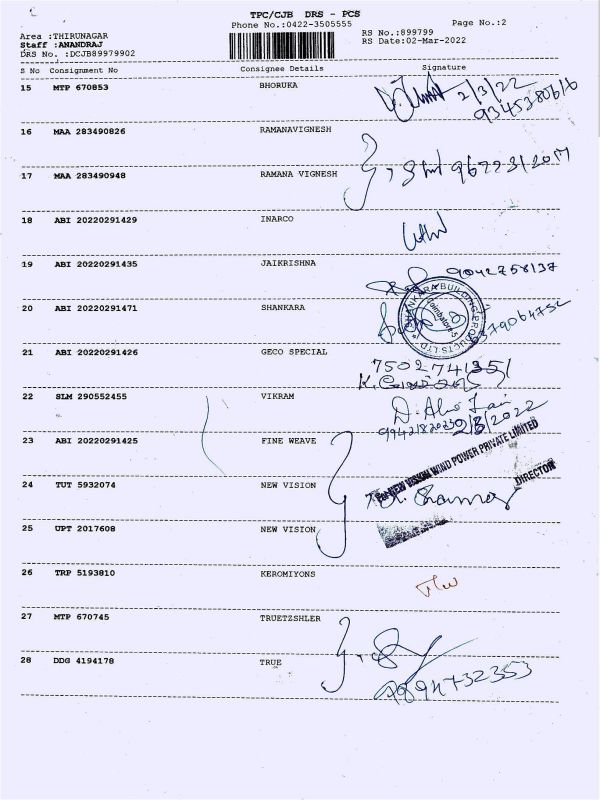 TPC/CJB DRS - PCS
Phone No.:0422-3505555
Page No.:2
Area :THIRUNAGAR
Staff :ANANDRAJ
DRS No. :DCJB89979902
RS No.:899799
RS Date:02-Mar-2022
S No Consignment No Consignee Details Signature
15 MTP 670853 BHORUKA
2/3/22
16 MAA 283490826 RAMANAVIGNESH
17 MAA 283490948 RAMANA VIGNESH
18 ABI 20220291429 INARCO
19 ABI 20220291435 JAIKRISHNA
9042758137
20 ABI 20220291471 SHANKARA
SHANKARA BUILDING PRODUCTS LTD
Coimbatore-5
9379064752
21 ABI 20220291426 GECO SPECIAL
7502741351
22 SLM 290552455 VIKRAM
23 ABI 20220291425 FINE WEAVE
For NEW VISION WIND POWER PRIVATE LIMITED
24 TUT 5932074 NEW VISION
DIRECTOR
25 UPT 2017608 NEW VISION
26 TRP 5193810 KEROMIYONS
27 MTP 670745 TRUETZSHLER
28 DDG 4194178 TRUE
9894732353